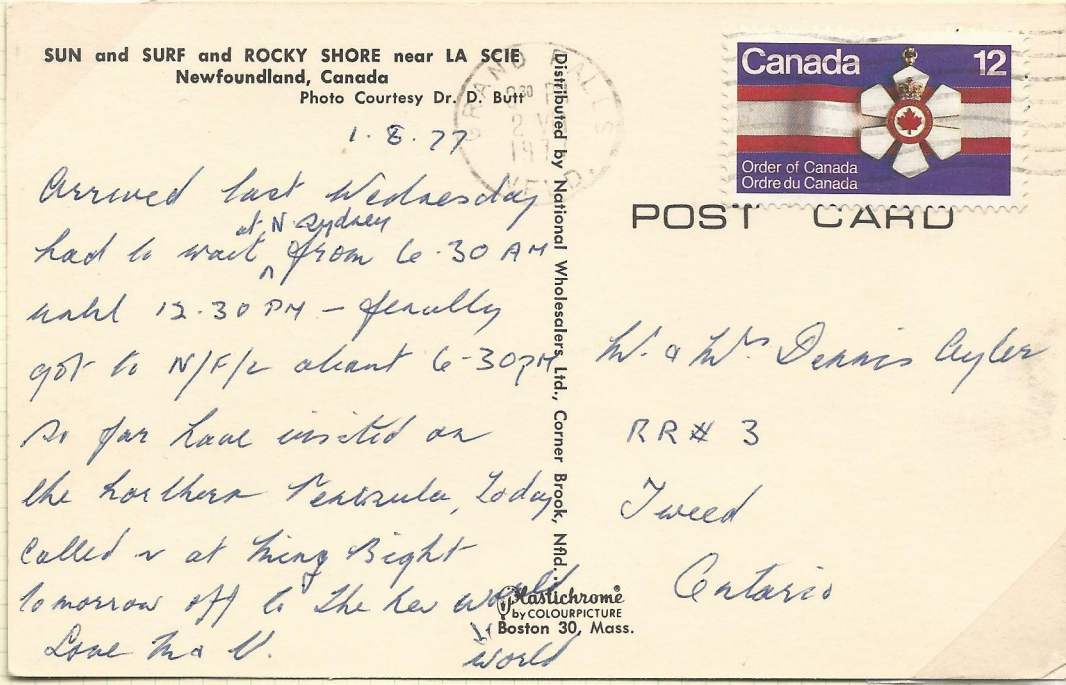 SUN and SURF and ROCKY SHORE near LA SCIE
Newfoundland, Canada
Photo Courtesy Dr. D. Butt
1.8.77
Arrived last Wednesday
at N Sydney
had to wait ^ from 6.30 AM
until 12.30 PM – finally
got to N/F/L about 6-30pm
so far have visited on
the Northern Peninsula, Today
called at Ming Bight
tomorrow off to the new world
Love M & V.
world
Distributed by National Wholesalers Ltd., Corner Brook, Nfld.
Plastichrome®
by COLOURPICTURE
Boston 30, Mass.
GRAND FALLS
NFLD.
Canada 12
Order of Canada
Ordre du Canada
POST CARD
Mr. & Mrs Dennis
RR# 3
Tweed
Ontario